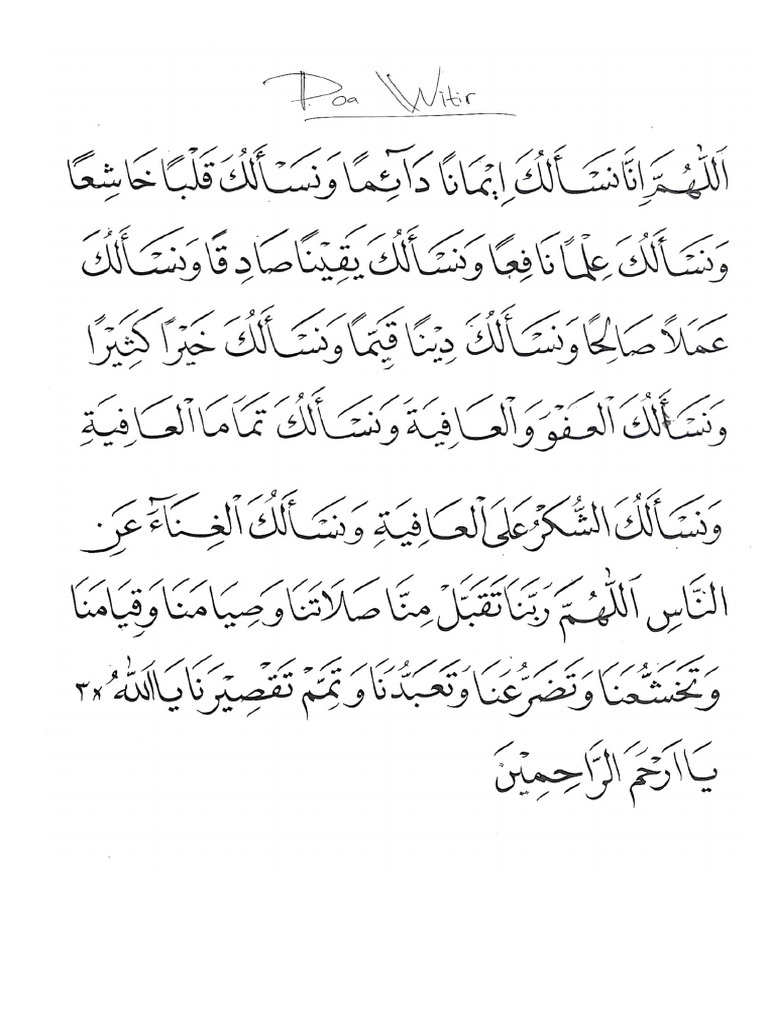 Doa Witir
اَللّٰهُمَّ اِنَّا نَسْأَلُكَ اِيْمَانًا دَآئِمًا وَنَسْأَلُكَ قَلْبًا خَاشِعًا
وَنَسْأَلُكَ عِلْمًا نَافِعًا وَنَسْأَلُكَ يَقِيْنًا صَادِقًا وَنَسْأَلُكَ
عَمَلًا صَالِحًا وَنَسْأَلُكَ دِيْنًا قَيِّمًا وَنَسْأَلُكَ خَيْرًا كَثِيْرًا
وَنَسْأَلُكَ الْعَفْوَ وَالْعَافِيَةَ وَنَسْأَلُكَ تَمَامَا الْعَافِيَةِ
وَنَسْأَلُكَ الشُّكْرُ عَلَى الْعَافِيَةِ وَنَسْأَلُكَ الْغِنَاءَٓ عَنِ
النَّاسِ اَللّٰهُمَّ رَبَّنَا تَقَبَّلْ مِنَّا صَلَاتَنَا وَصِيَامَنَا وَقِيَامَنَا
وَتَخَشُّعَنَا وَتَضَرُّعَنَا وَتَعَبُّدَنَا وَتَمِّمْ تَقْصِيْرَنَا يَا اَللّٰهُ ×٣
يَا اَرْحَمَ الرَّاحِمِيْنَ